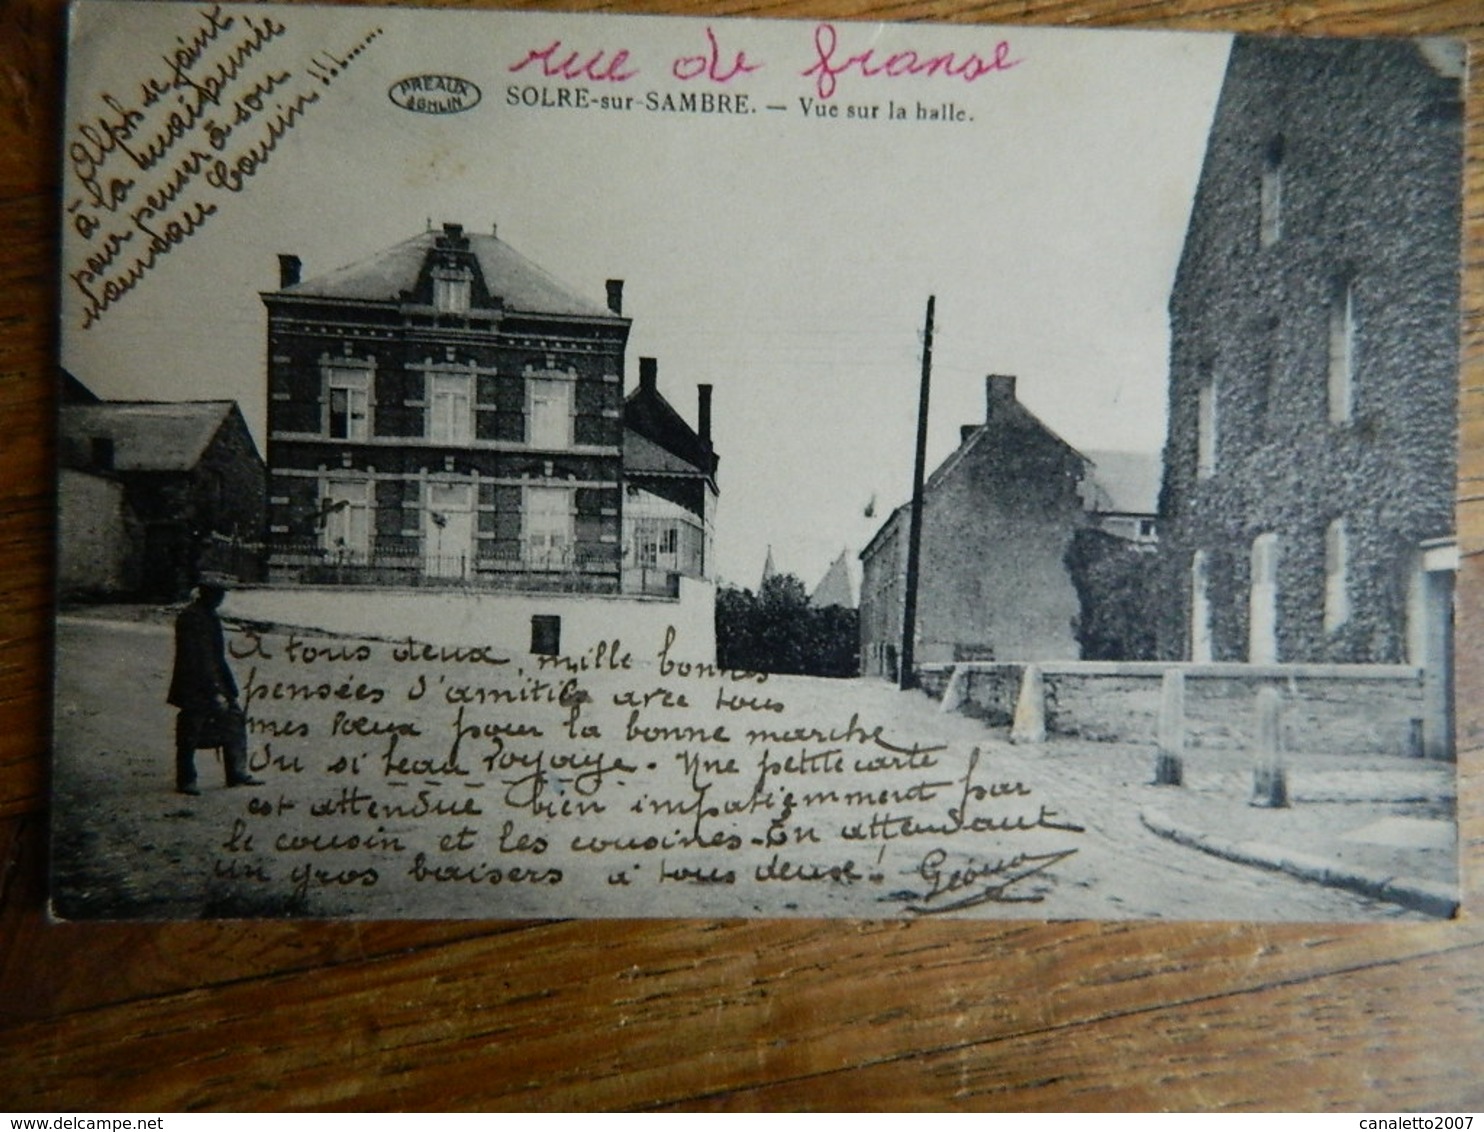 rue de franse
PREAUX
A GHLIN
SOLRE-sur-SAMBRE. — Vue sur la halle.
Alph se joint
à la
pour penser à son
Cousin !!!......
A tous deux, mille bonnes
pensées d'amitié avec tous
mes vœux pour la bonne marche
Du si beau voyage - Une petite carte
est attendue bien impatiemment par
le cousin et les cousines - En attendant
un gros baisers à tous deux!
canaletto2007